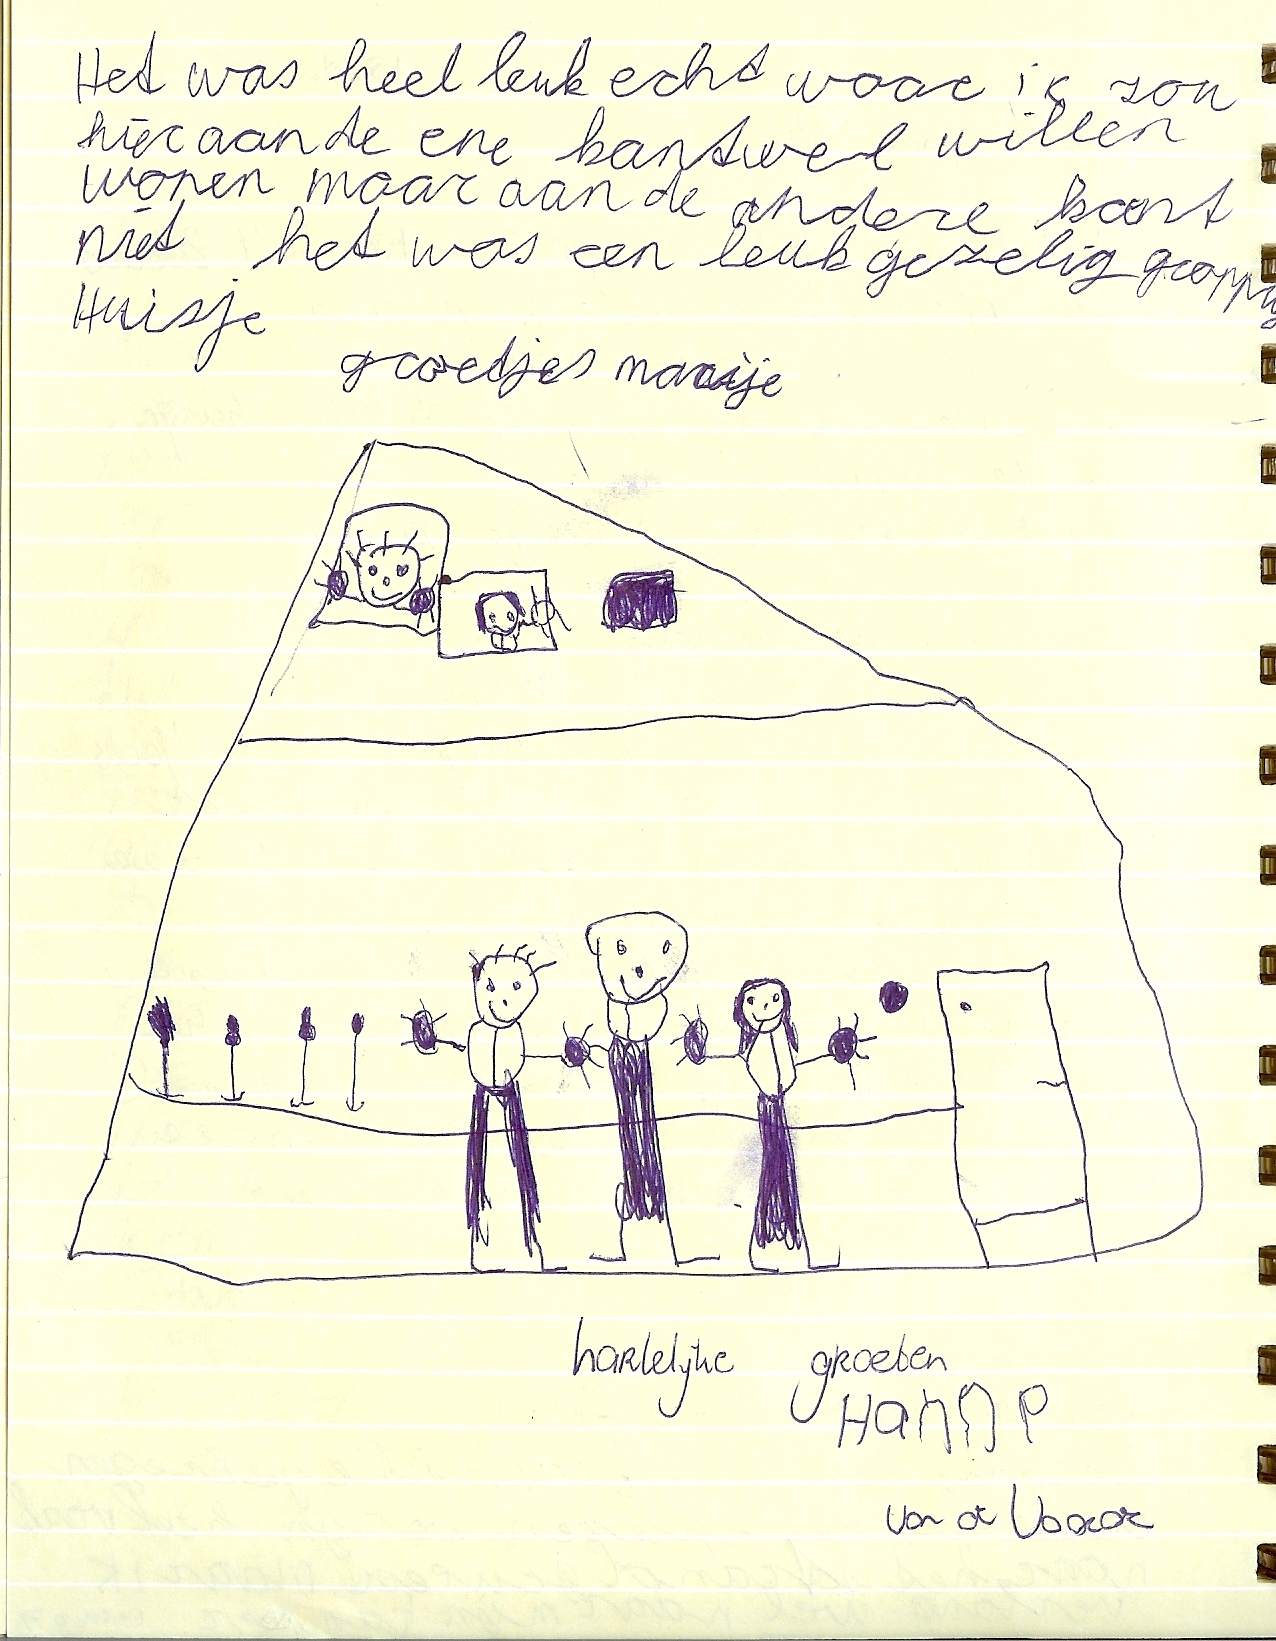 Het was heel leuk echt waar ik zou
hier aan de ene kant wel willen
wonen maar aan de andere kant
niet het was een leuk gezelig grappig
Huisje
groetjes maaije
hartelijke groeten
Hanne
van de